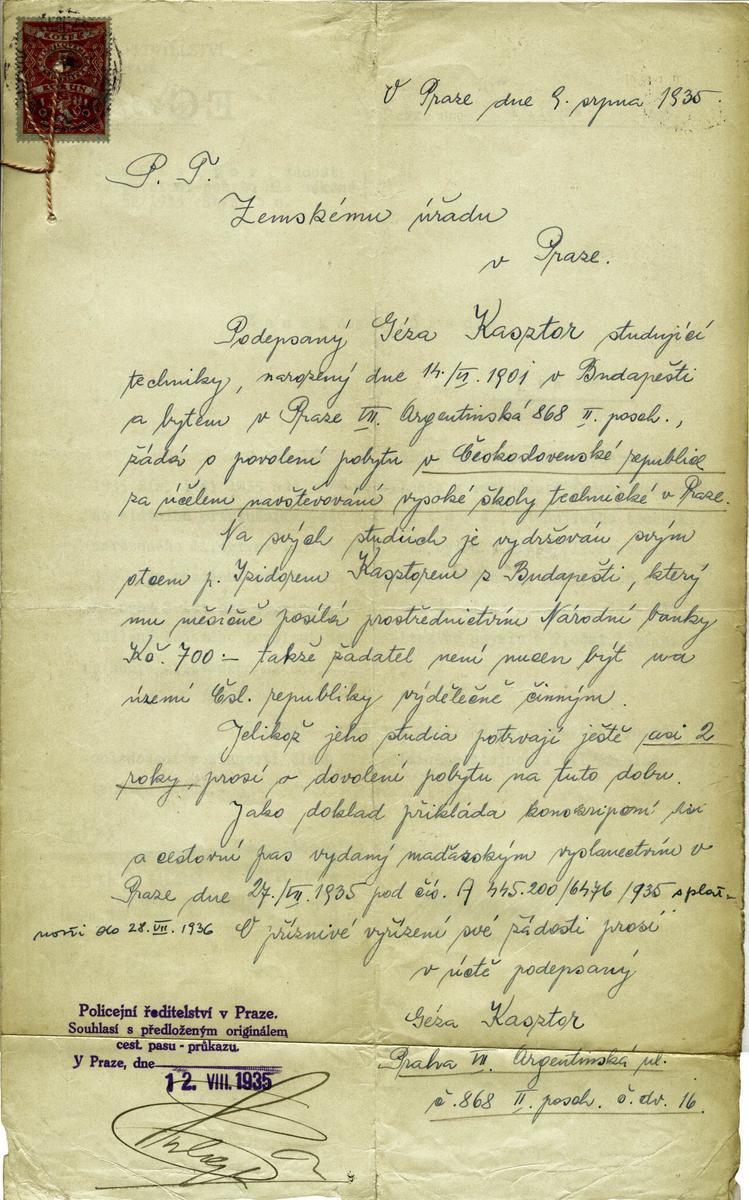 KOLEK
KORUN
V Praze dne 9. srpna 1935.
P. T.
Zemskému úřadu
v Praze.
Podepsaný Géza Kasztor studující
techniky, narozený dne 14./VI. 1901 v Budapešti
a bytem v Praze VII. Argentinská 868 II. posch.,
žádá o povolení pobytu v Československé republice
za účelem navštěvování vysoké školy technické v Praze.
Na svých studiích je vydržován svým
otcem p. Izidorem Kasztorem z Budapešti, který
mu měsíčně posílá prostřednictvím Národní banky
Kč. 700.– takže žadatel není nucen být na
území Čsl. republiky výdělečně činným.
Jelikož jeho studia potrvají ještě asi 2
roky, prosí o dovolení pobytu na tuto dobu.
Jako doklad přikládá konskripční
a cestovní pas vydaný maďarským vyslanectvím v
Praze dne 27./VII. 1935 pod čís. A 445.200/6476/1935 s plat-
ností do 28. VII. 1936 O příznivé vyřízení své žádosti prosí
v úctě podepsaný
Géza Kasztor
Praha VII. Argentinská ul.
č. 868 II. posch. č. dv. 16.
Policejní ředitelství v Praze.
Souhlasí s předloženým originálem
cest. pasu - průkazu.
V Praze, dne
12. VIII. 1935